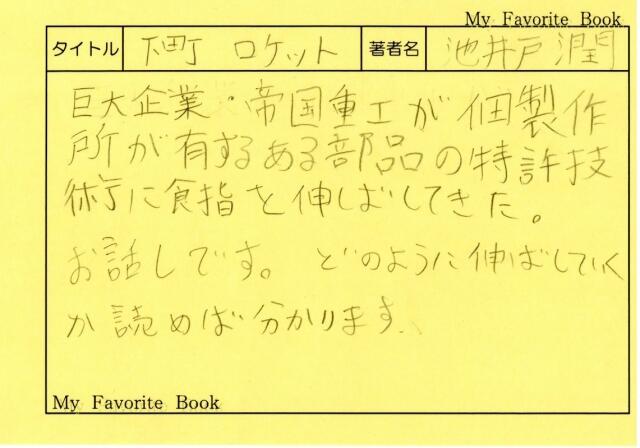 My Favorite Book
タイトル 下町 ロケット 著者名 池井戸 潤
巨大企業・帝国重工が佃製作
所が有するある部品の特許技
術に食指を伸しばしてきた。
お話しです。 どのように伸ばしていく
か読めば分かります、
My Favorite Book